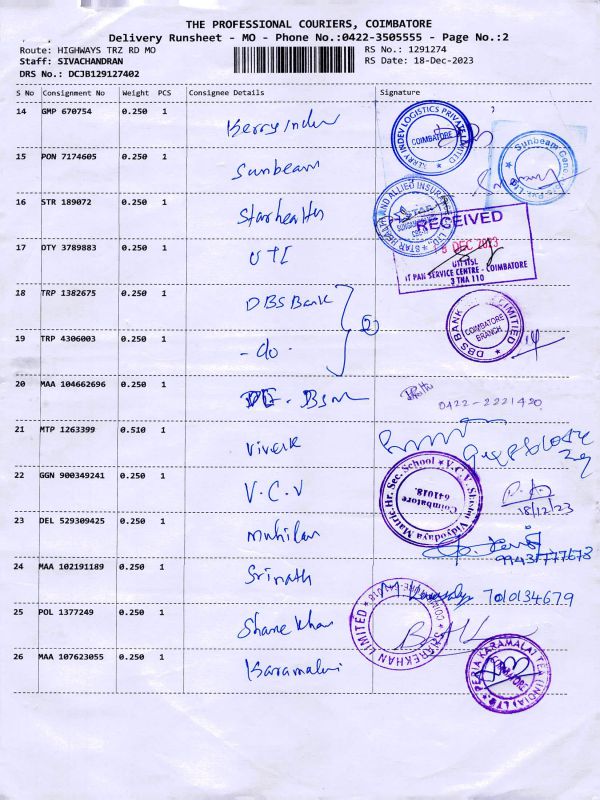 THE PROFESSIONAL COURIERS, COIMBATORE
Delivery Runsheet - MO - Phone No.:0422-3505555 - Page No.:2
Route: HIGHWAYS TRZ RD MO RS No.: 1291274
Staff: SIVACHANDRAN RS Date: 18-Dec-2023
DRS No.: DCJB129127402
S No Consignment No Weight PCS Consignee Details Signature
14 GMP 670754 0.250 1 Kerry Indev
15 PON 7174605 0.250 1 Sunbeam
16 STR 189072 0.250 1 Starhealth
RECEIVED
18 DEC 2023
17 DTY 3789883 0.250 1 UTI
UTIITSL
IT PAN SERVICE CENTRE - COIMBATORE
3 THA 110
18 TRP 1382675 0.250 1 DBS Bank
DBS BANK COIMBATORE BRANCH
19 TRP 4306003 0.250 1 - do -
20 MAA 104662696 0.250 1
0422-2221420
21 MTP 1263399 0.510 1 Vivek
22 GGN 900349241 0.250 1 V.C.V
Coimbatore 641018.
18/12/23
23 DEL 529309425 0.250 1 Muhilan
24 MAA 102191189 0.250 1 Srinath
7010134679
25 POL 1377249 0.250 1 Sharekhan
SHAREKHAN LIMITED
26 MAA 107623055 0.250 1 Karamalai
PERIA KARAMALAI TEA (INDIA) LTD COIMBATORE